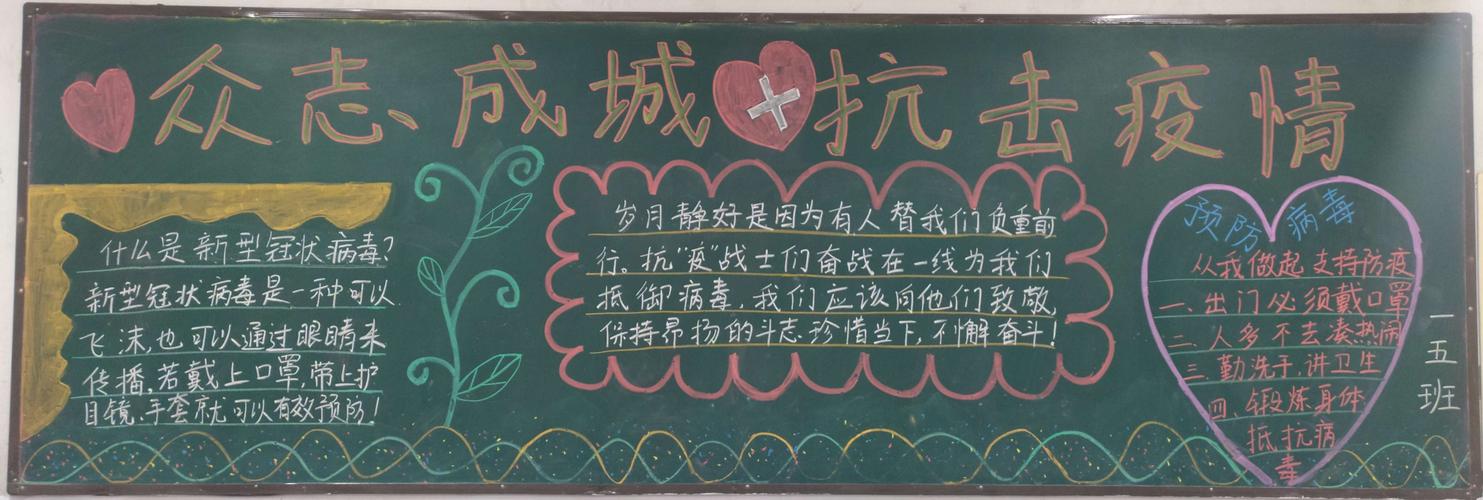 众志成城抗击疫情
什么是新型冠状病毒?
新型冠状病毒是一种可以
飞沫,也可以通过眼睛来
传播,若戴上口罩,带上护
目镜、手套就可以有效预防!
岁月静好是因为有人替我们负重前
行。抗“疫”战士们奋战在一线为我们
抵御病毒,我们应该向他们致敬,
保持昂扬的斗志珍惜当下,不懈奋斗!
预防病毒
从我做起支持防疫
一、出门必须戴口罩
二、人多不去凑热闹
三、勤洗手,讲卫生
四、锻炼身体
抵抗病
毒
一五班